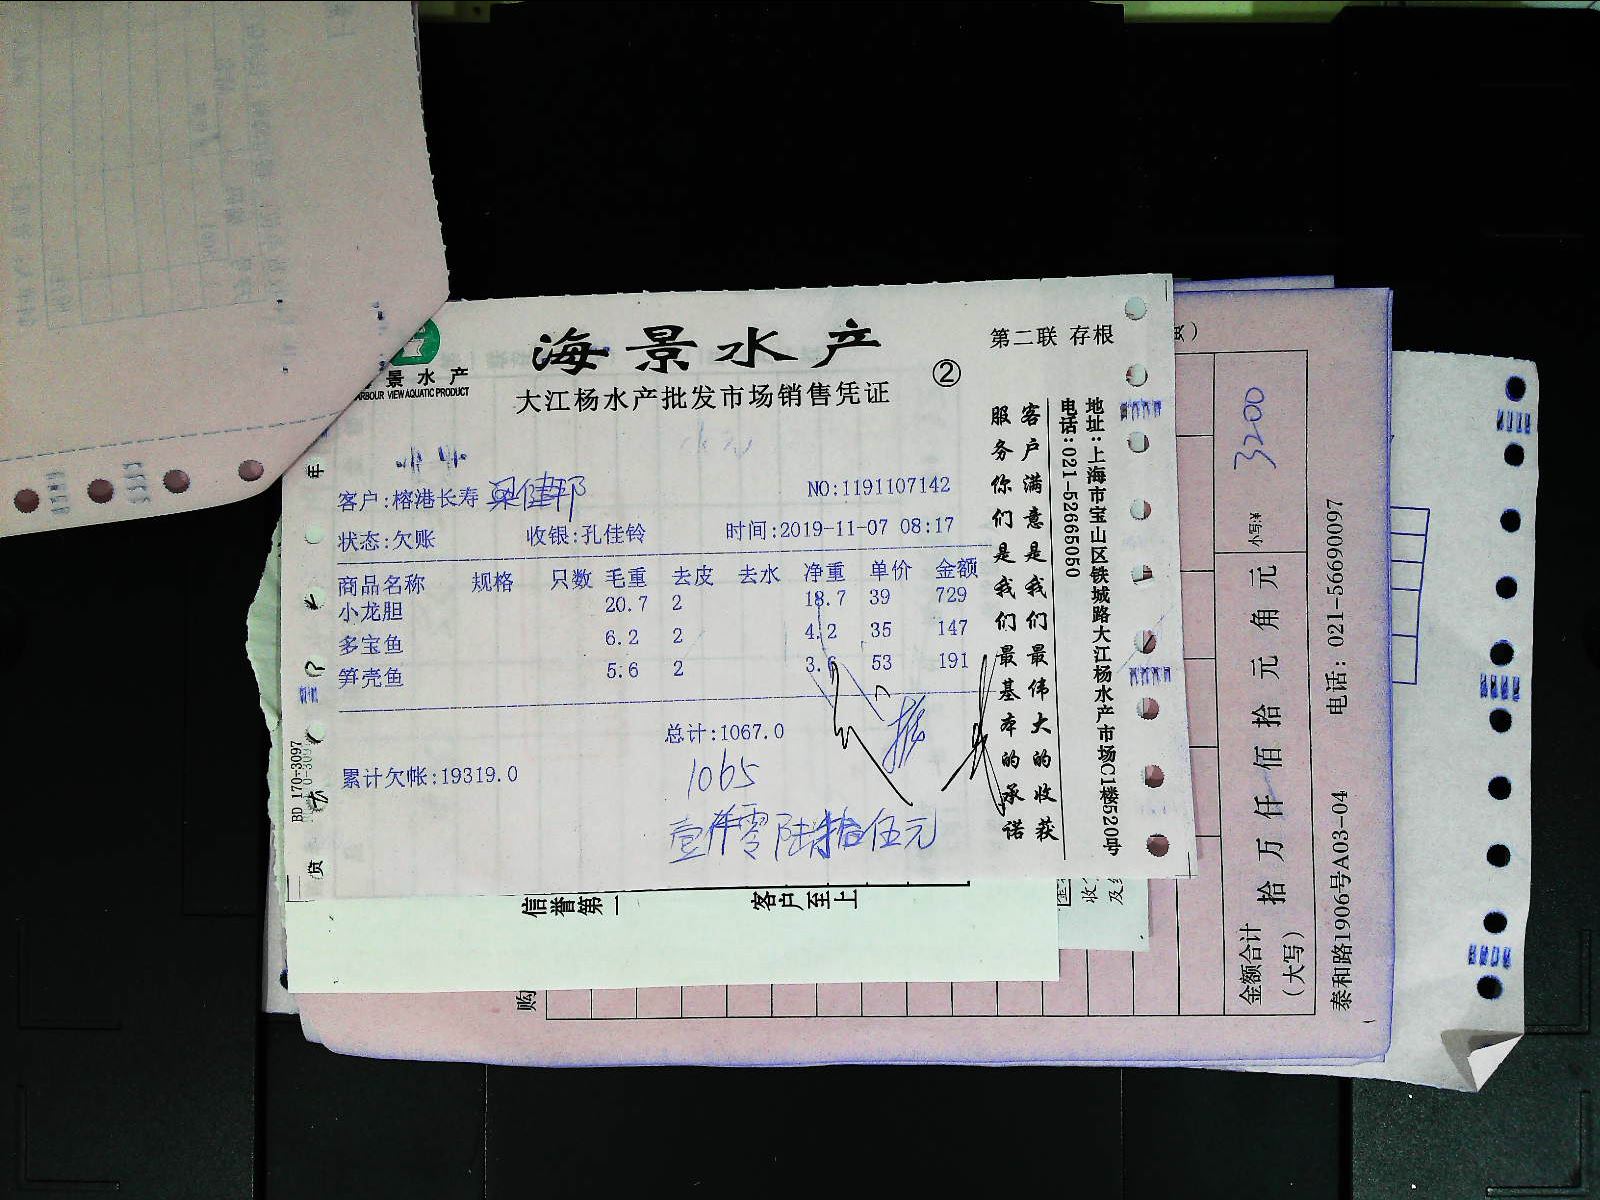 海景水产
第二联 存根
②
景水产
ARBOUR VIEW AQUATIC PRODUCT
大江杨水产批发市场销售凭证
客户:榕港长寿 梁健邦
NO:1191107142
状态:欠账 收银:孔佳铃 时间:2019-11-07 08:17
商品名称 规格 只数 毛重 去皮 去水 净重 单价 金额
小龙胆 20.7 2 18.7 39 729
多宝鱼 6.2 2 4.2 35 147
笋壳鱼 5.6 2 3.6 53 191
总计:1067.0
累计欠帐:19319.0
1065
壹仟零陆拾伍元
客户满意是我们最伟大的收获
服务你们是我们最基本的承诺
地址:上海市宝山区铁城路大江杨水产市场C1楼520号
电话:021-52665050
BD 170-3097
信誉第一
客户至上
购
3200
小写:¥
金额合计
(大写)
拾 万 仟 佰 拾 元 角 元
泰和路1906号A03-04 电话: 021-56690097